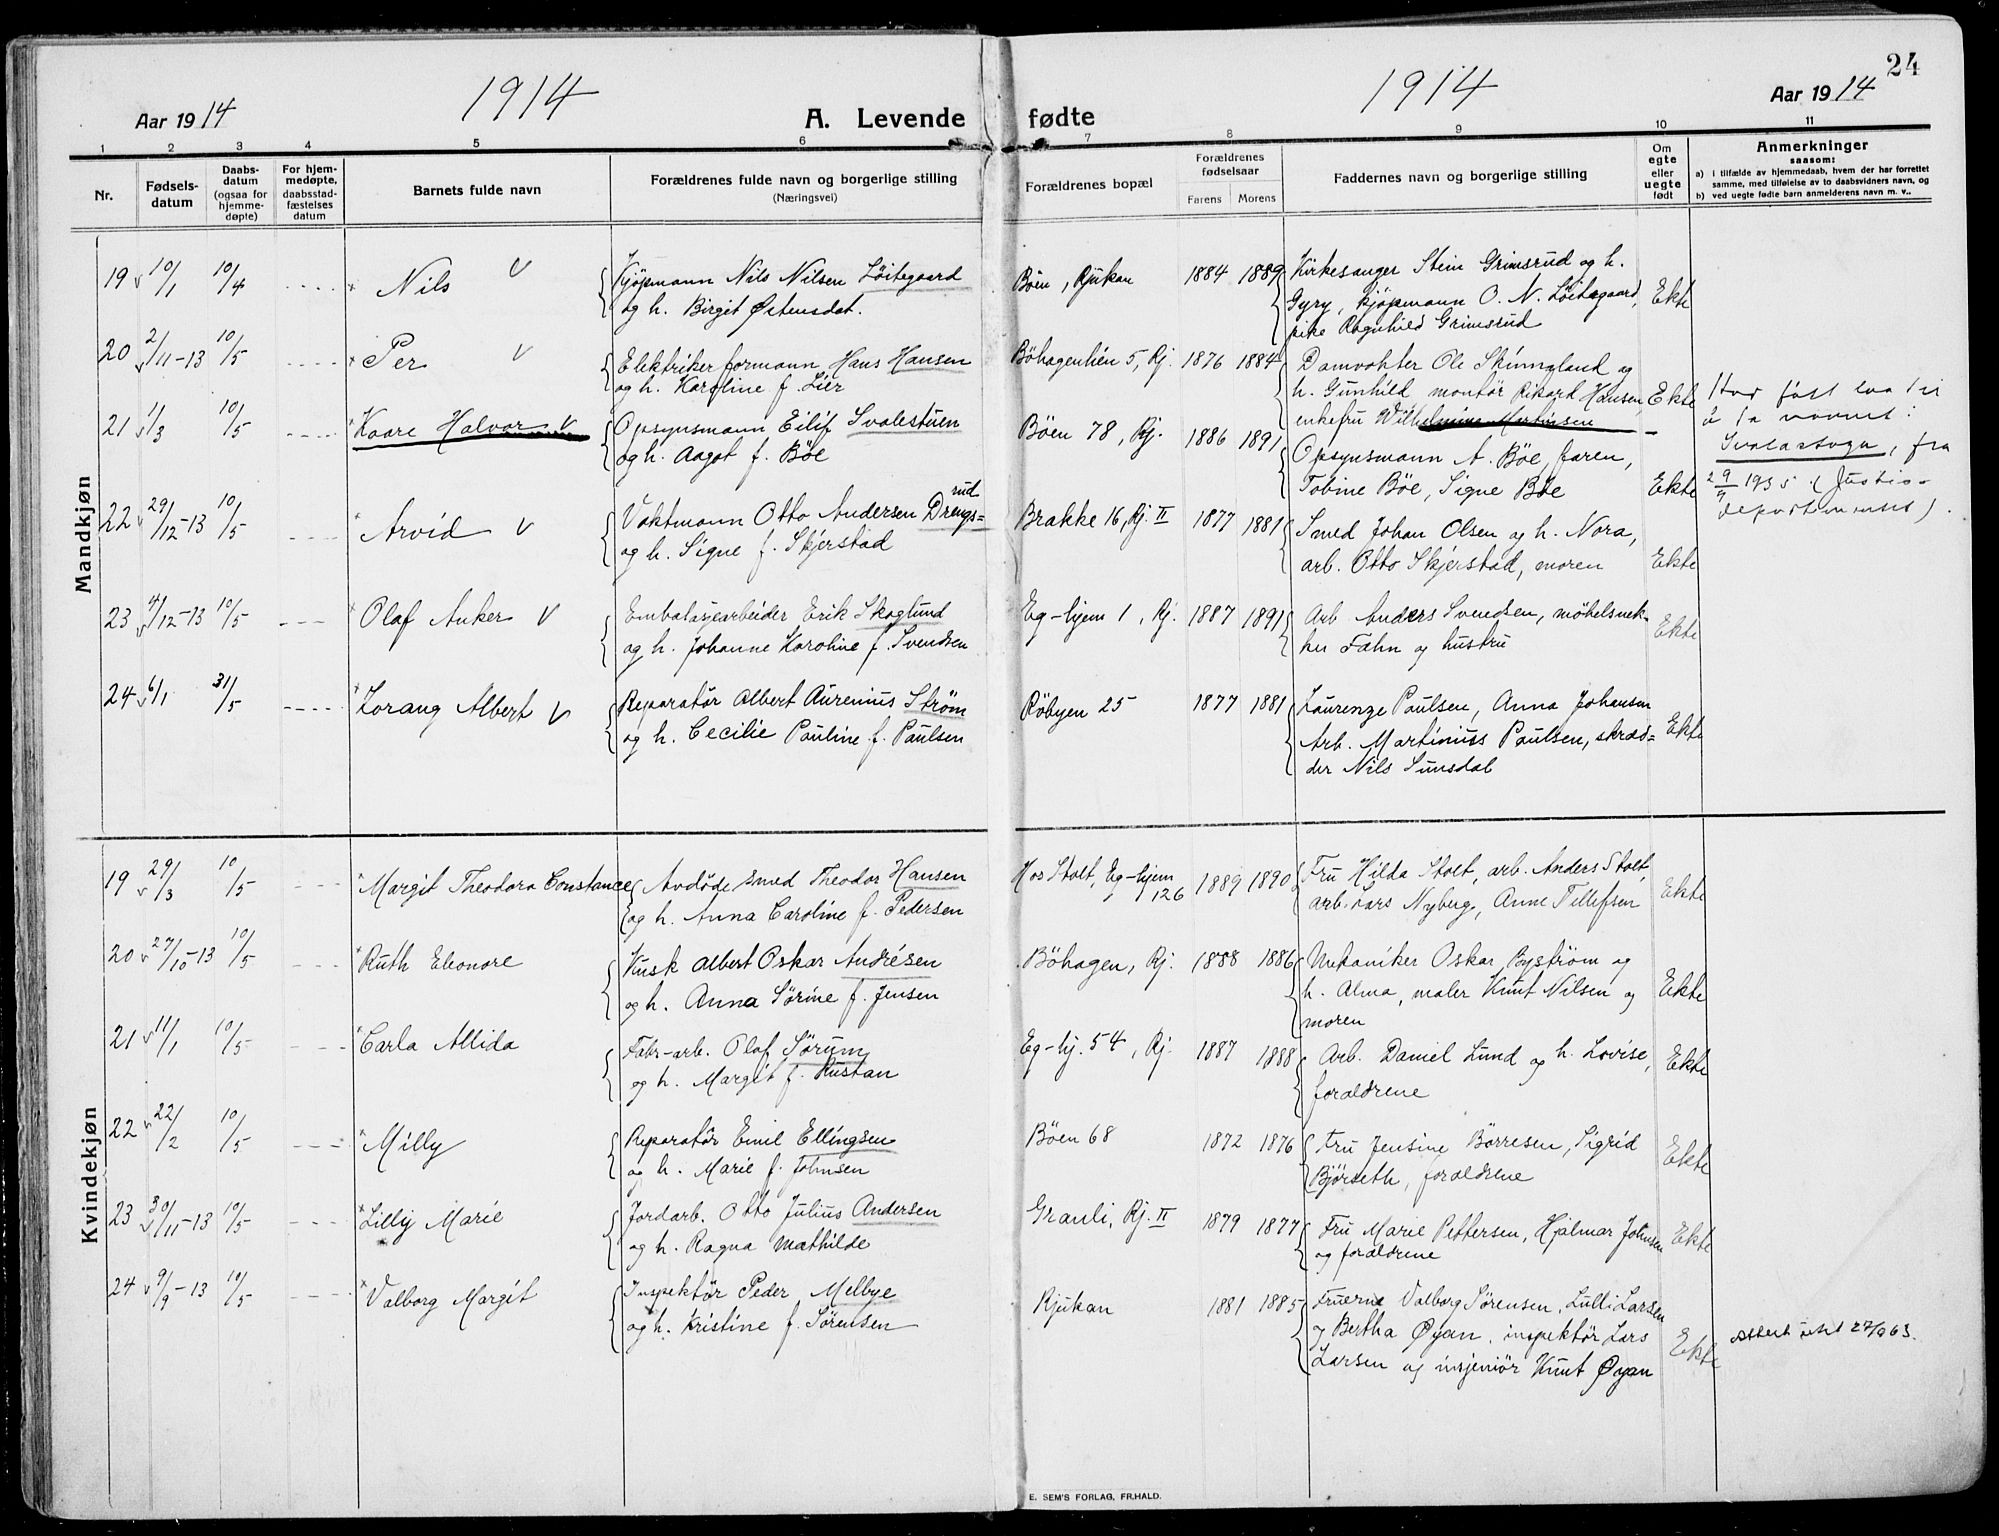 24
Aar 1914
1914
A. Levende fødte
1914
Aar 1914
1 2 3 4 5 6 7 8 9 10 11
Nr.
Fødsels-
datum
Daabs-
datum
(ogsaa for
hjemme-
døpte)
For hjem-
medøpte,
daabsstad-
fæstelses
datum
Barnets fulde navn
Forældrenes fulde navn og borgerlige stilling
(Næringsvei)
Forældrenes bopæl
Forældrenes
fødselsaar
Farens Morens
Faddernes navn og borgerlige stilling
Om
egte
eller
uegte
født
Anmerkninger
saasom:
a) i tilfælde av hjemmedaab, hvem der har forrettet
samme, med tilføielse av to daabsvidners navn, og
b) ved uegte fødte barn anmelderens navn m. v..
Mandkjøn
19 10/1 10/4 Nils Kjøpmann Nils Nilsen Löitegaard
og h. Birgit Østensdat.
Böen, Rjukan 1884 1889 Kirkesanger Stein Grimsrud og h.
Gyry, kjøpmann O. N. Löitegaard,
pike Ragnhild Grimsrud
Ekte
20 2/11-13 10/5 Per Elektriker formann Hans Hansen
og h. Karoline f. Lier
Böhagenhien 5, Rj. 1876 1884 Damvokter Ole Skinnyland og
h. Gunhild montör Rikard Hansen,
enkefru Wilhelmine Martinsen
Ekte
21 1/3 10/5 Kaare Halvor Opsynsmann Eilif Svalestuen
og h. Aagot f. Böe
Böen 78, Rj. 1886 1891 Opsynsmann A. Böe, faren,
Tobine Böe, Signe Böe
Ekte
Har fått lov til
å ta navnet:
Svalastoga, fra
29/9 1935 (Justis-
departementet).
22 29/12-13 10/5 Arvid Vaktmann Otto Andersen Drengs=
rud
og h. Signe f. Skjerstad
Brakke 16, Rj. II 1877 1881 Smed Johan Olsen og h. Nora,
arb. Otto Skjerstad, moren
Ekte
23 4/12-13 10/5 Olaf Anker Embalasjearbeider Erik Skoglund
og h. Johanne Karoline f. Svendsen
Eg-hjem 1, Rj. 1887 1891 Arb. Anders Svendsen, möbelsnek-
ker Fahn og hustru
Ekte
24 6/1 31/5 Lorang Albert Reparatør Albert Aurenius Ström
og h. Cecilie Pauline f. Paulsen
Röbyen 25 1877 1881 Laurenze Paulsen, Anna Johansen
Arb. Martinius Paulsen, skræd=
der Nils Sunsdal
Ekte
Kvindekjøn
19 29/3 10/5 Margit Theodora Constance Avdöde smed Theodor Hansen
og h. Anna Caroline f. Pedersen
Hos Stolt, Eg-hjem
126
1889 1890 Fru Hilda Stolt, arb. Anders Stolt,
arb. Lars Nyberg, Anne Tellefsen
Ekte
20 27/10-13 10/5 Ruth Eleonore Kusk Albert Oskar Andrésen
og h. Anna Sörine f. Jensen
Böhagen, Rj. 1888 1886 Mekaniker Oskar Byström og
h. Alma, maler Knut Nilsen og
moren
Ekte
21 11/1 10/5 Carla Allida Fabr-arb. Olaf Sörum
og h. Margit f. Rustan
Eg-hj. 54, Rj. 1887 1888 Arb. Daniel Lund og h. Lovise,
foraldrene
Ekte
22 22/2 10/5 Milly Reparatör Emil Ellingsen
og h. Marie f. Johnsen
Böen 68 1872 1876 Fru Jensine Börresen, Sigrid
Bjørseth, foraldrene
Ekte
23 30/11-13 10/5 Lilly Marie Jordarb. Otto Julius Andersen
og h. Ragna Mathilde
Granli, Rj. II 1879 1877 Fru Marie Pettersen, Hjalmar Johnsen
og foraldrene
Ekte
24 9/9-13 10/5 Valborg Margit Inspektör Peder Melbye
og h. Kristine f. Sörensen
Rjukan 1881 1885 Fruerne Valborg Sörensen, Lulli Larsen
og Bertha Øyan, inspektör Lars
Larsen og insjeniör Knut Øyan
Ekte
Attest 27/9 63.
E. SEM'S FORLAG, FR.HALD.